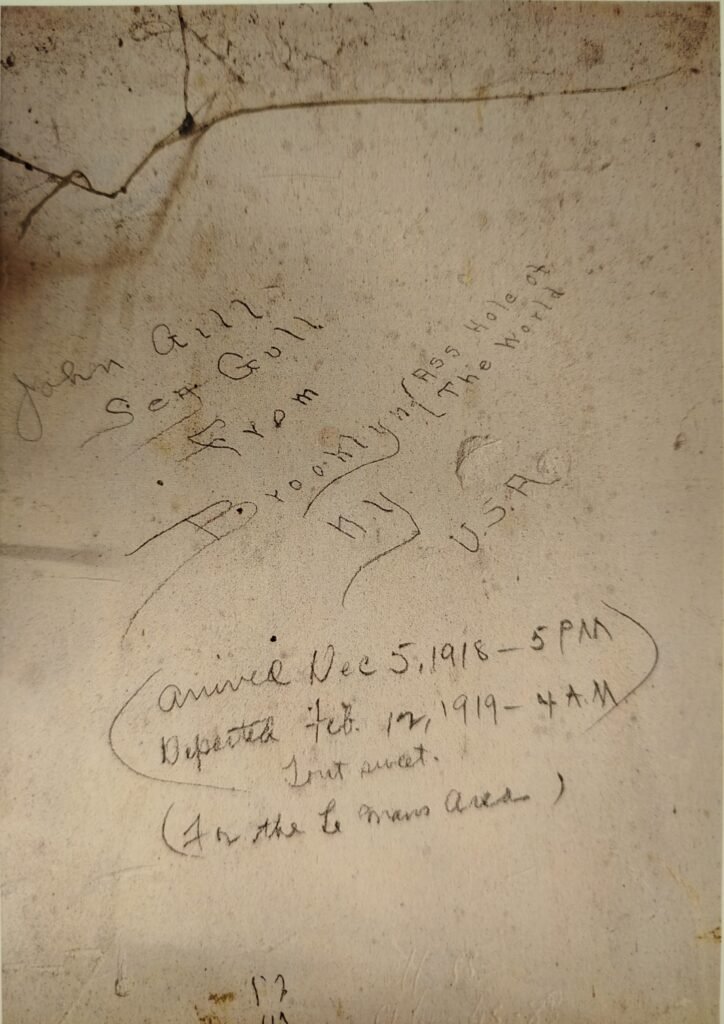 John Gill
Sea Gull
From
Brooklyn (Ass Hole of
The World
N.Y
U.S.A
(arrived Dec 5, 1918 – 5 PM
Departed Feb. 12, 1919 – 4 A.M.)
Tout sweet.
(For the Le Mans Area)